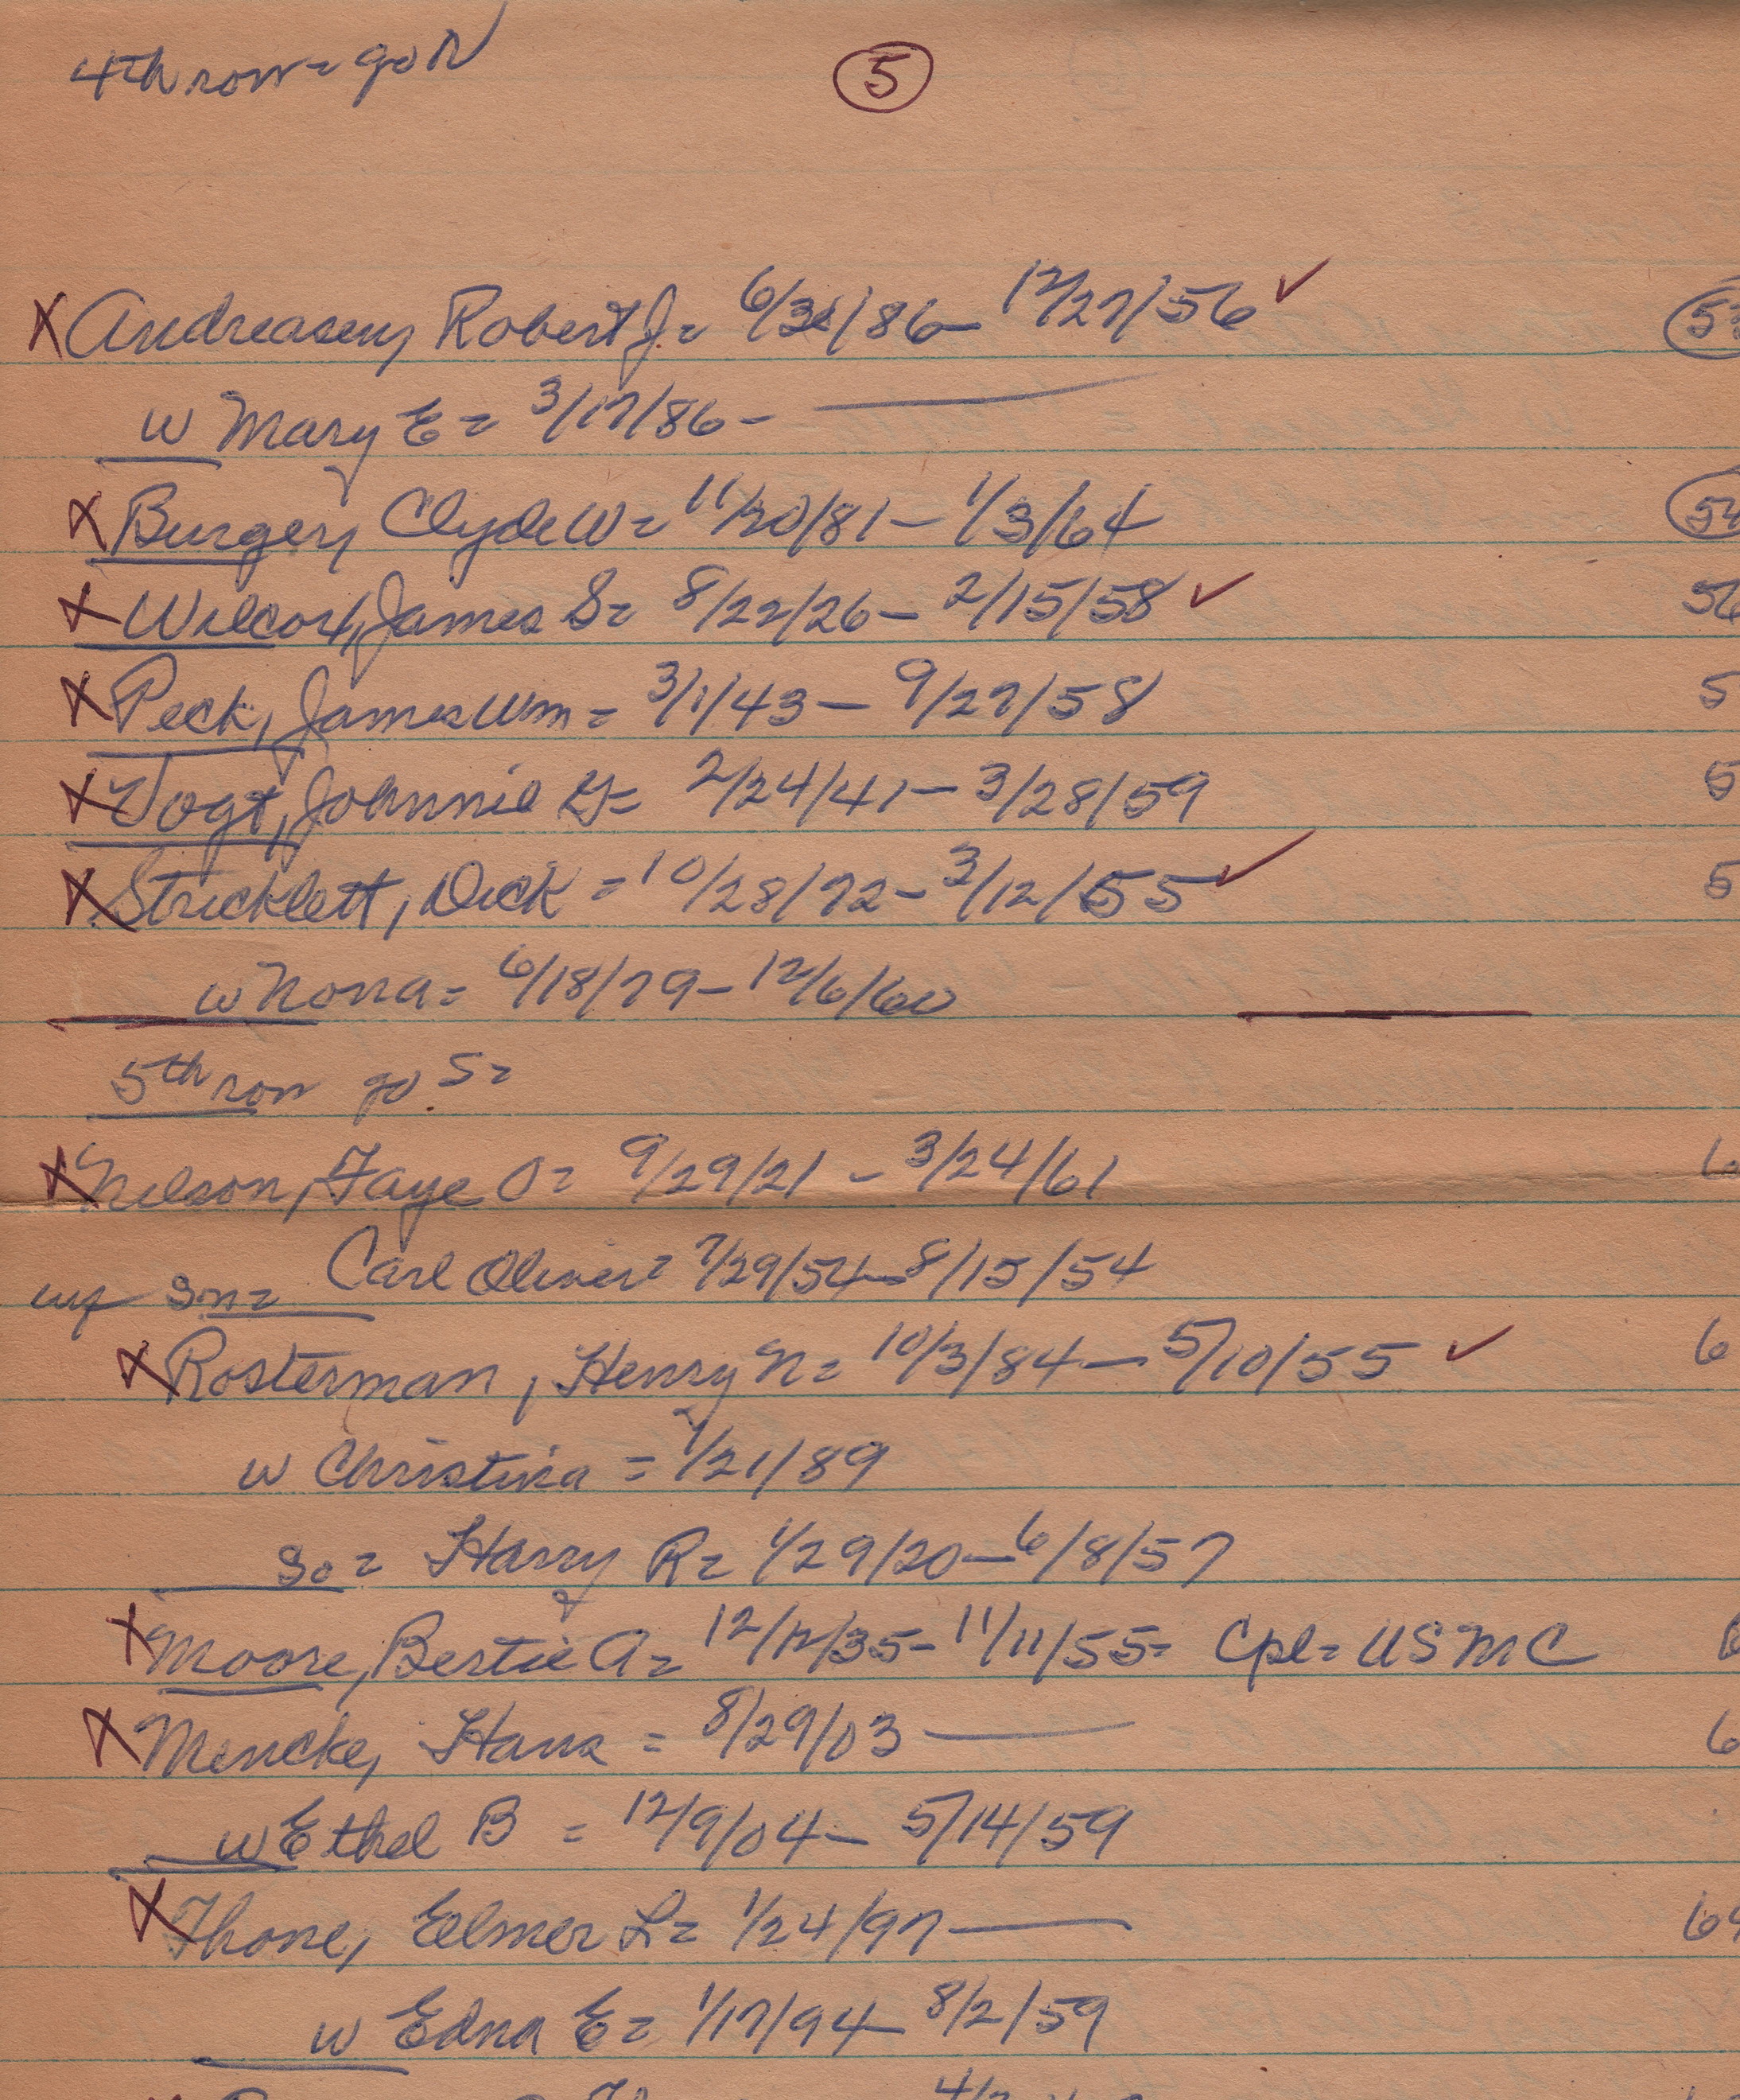 4th row = go N
5
X Andreasen, Robert J = 6/3/86 - 12/27/56 ✓
w Mary E = 3/17/86 -
X Burger, Clyde W = 11/30/81 - 1/3/64
X Wilcox, James S = 8/22/26 - 2/15/58 ✓ 56
X Peck, James Wm = 3/1/43 - 9/27/58 5
X Vogt, Johnnie G = 2/24/41 - 3/28/59 5
X Stricklett, Dick = 10/28/72 - 3/12/55 ✓ 5
w Nona = 6/18/79 - 12/6/60
5th row go S =
X Nelson, Faye O = 9/29/21 - 3/24/61 6
inf son = Carl Oliver = 7/29/54 - 8/15/54
X Rosterman, Henry N = 10/3/84 - 5/10/55 ✓ 6
w Christina = 1/21/89
so = Harry R = 1/29/20 - 6/8/57
X Moore, Bertie A = 12/12/35 - 11/11/55 = Cpl = USMC
X Mencke, Hans = 8/29/03 6
w Ethel B = 12/9/04 - 5/14/59
X Thone, Elmer L = 1/24/97 64
w Edna E = 1/17/94 - 8/2/59